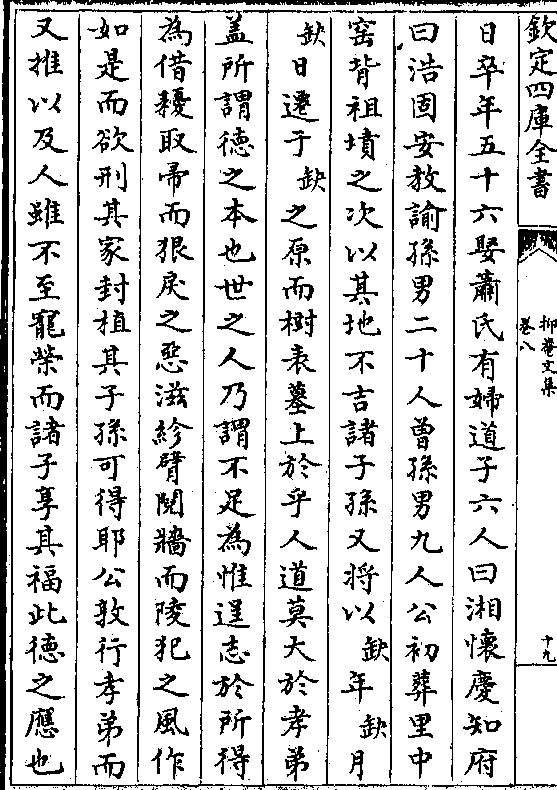 欽定四庫全書
抑菴文集
卷八
十九
日卒年五十六娶蕭氏有婦道子六人曰湘懷慶知府
曰浩固安教諭孫男二十人曾孫男九人公初葬里中
窑背祖墳之次以其地不吉諸子孫又將以缺年缺月
缺日遷于缺之原而樹表墓上於乎人道莫大於孝弟
盖所謂德之本也世之人乃謂不足為惟逞志於所得
為借耰取帚而狠戾之惡滋紾臂鬩牆而陵犯之風作
如是而欲刑其家封植其子孫可得耶公敦行孝弟而
又推以及人雖不至寵榮而諸子享其福此德之應也